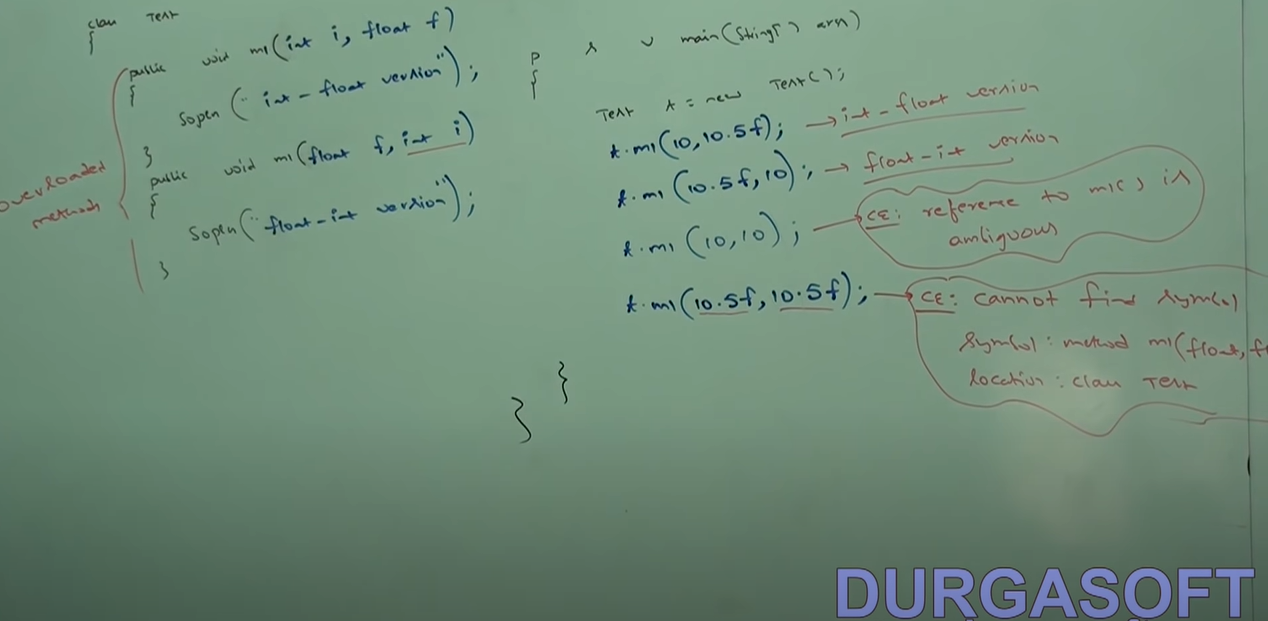 class Test
{
public void m1(int i, float f)
{
Sopln("int-float version");
}
public void m1(float f, int i)
{
Sopln("float-int version");
}
overloaded
methods
P S V main(String[] args)
{
Test t = new Test();
t.m1(10,10.5f); → int-float version
t.m1(10.5f,10); → float-int version
t.m1(10,10); → CE: reference to m1() is
ambiguous
t.m1(10.5f,10.5f); → CE: cannot find symbol
symbol: method m1(float, f
location: class Test
}
}
DURGASOFT